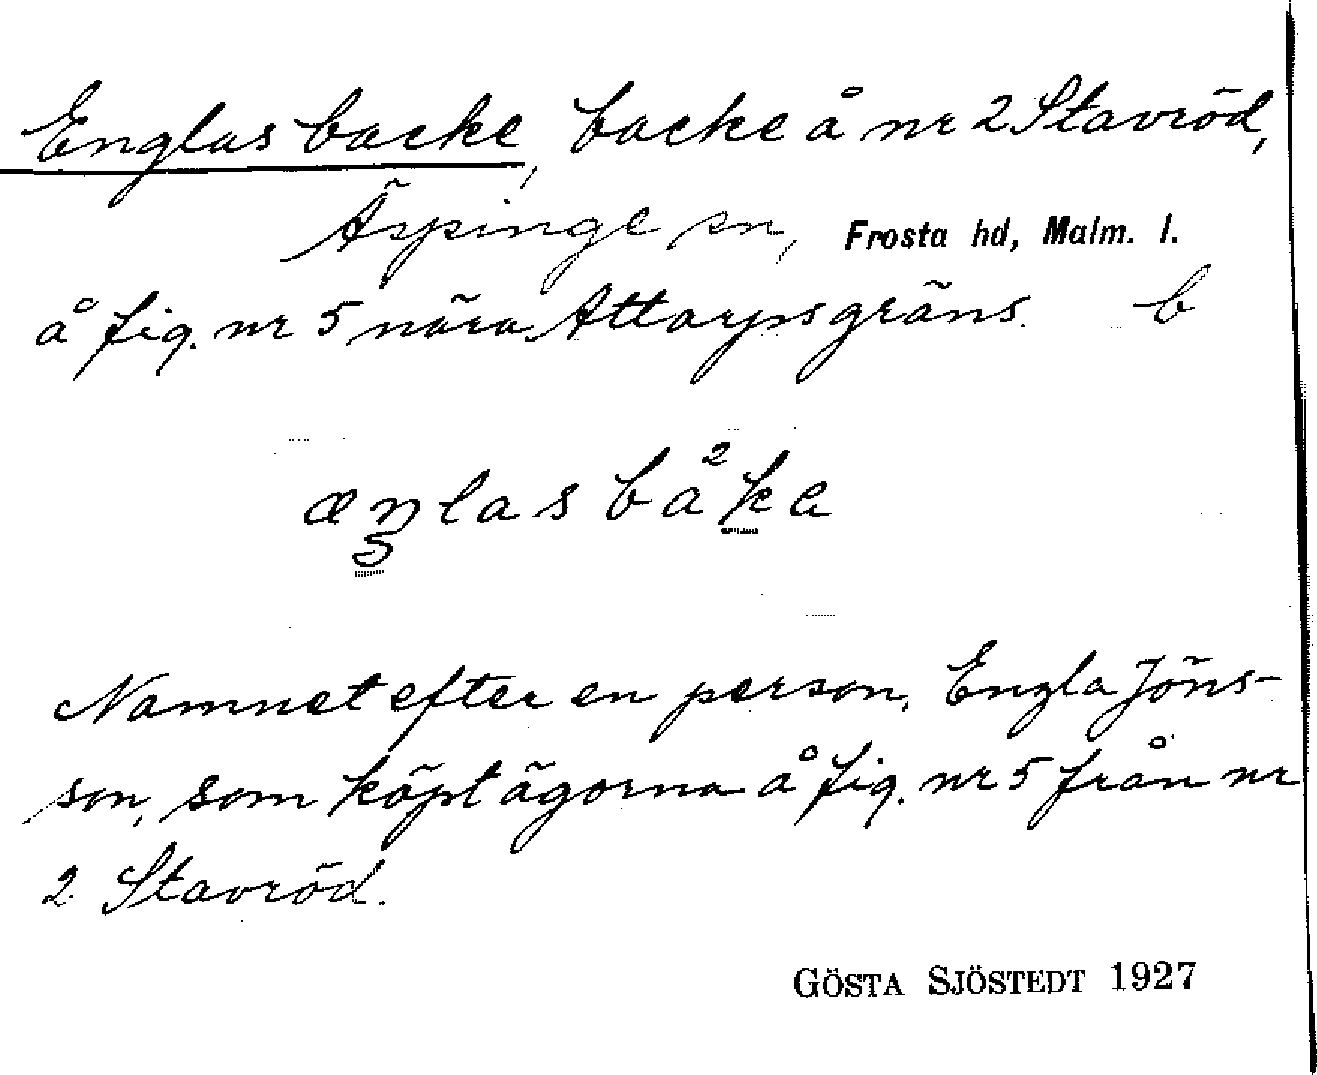 Englas backe, backe å nr 2 Stavröd,
Äspinge sn, Frosta hd, Malm. l.
å fig. nr 5 nära Attarpsgräns. b
æŋlas båka
Namnet efter en person, Engla Jöns-
son, som köpt ägorna å fig. nr 5 från nr
2 Stavröd.
GÖSTA SJÖSTEDT 1927